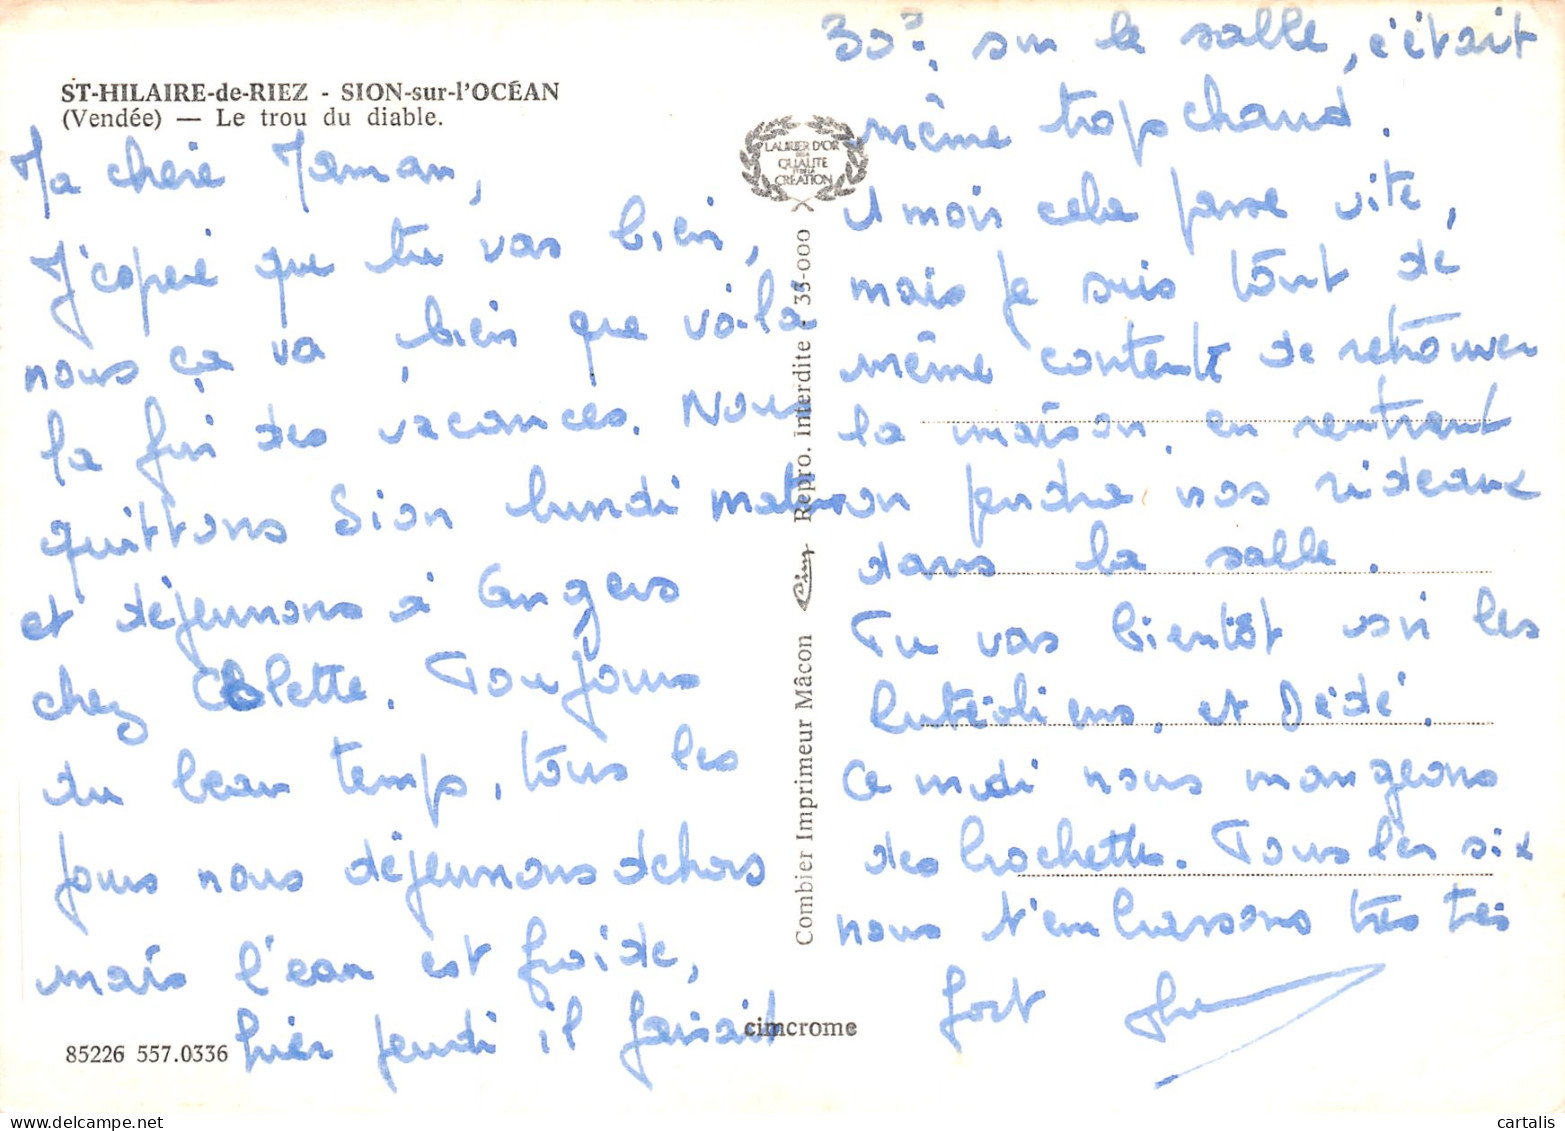 ST-HILAIRE-de-RIEZ - SION-sur-l'OCÉAN
(Vendée) — Le trou du diable.
Ma chère Maman,
J'espère que tu vas bien,
nous ça va, bien que voilà
la fin des vacances. Nous
quittons Sion lundi matin
et déjeunons à Angers
chez Colette. Toujours
du beau temps, tous les
jours nous déjeunons dehors
mais l'eau est froide,
hier jeudi il faisait
85226 557.0336
LAURIER D'OR
DE LA
QUALITE
ET DE LA
CRÉATION
Combier Imprimeur Mâcon Cim Repro. Interdite - 35-000
cimcrome
30° sur le sable, c'était
même trop chaud.
1 mois cela passe vite,
mais je suis tout de
même contente de retrouver
la maison, en rentrant
on pendra nos rideaux
dans la salle.
Tu vas bientôt voir les
et Dédé.
Ce midi nous mangeons
des brochettes. Tous les six
nous t'embrassons très très
fort
cartalis